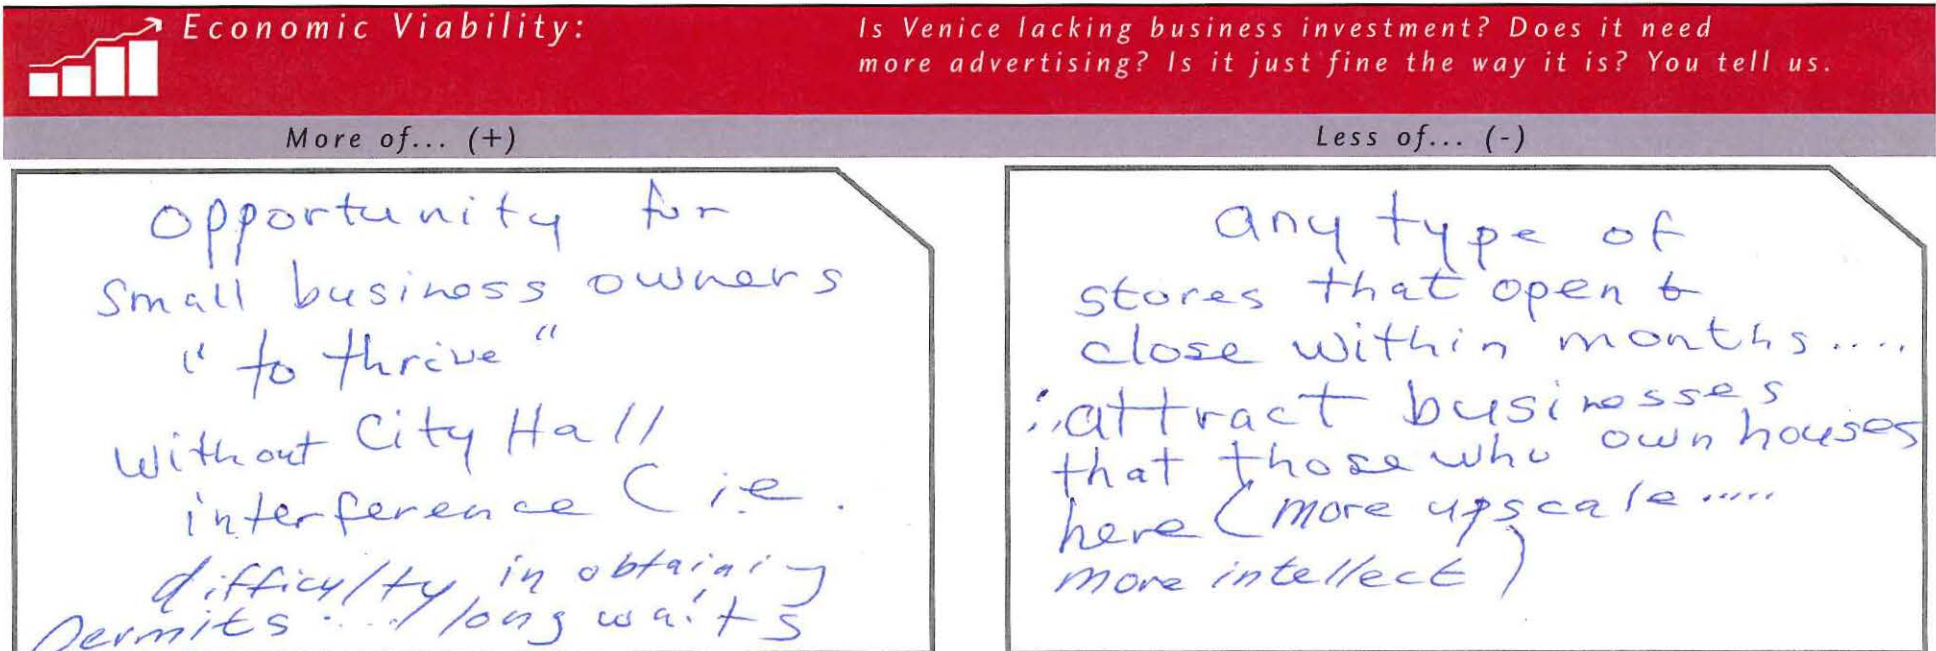 Economic Viability:
Is Venice lacking business investment? Does it need
more advertising? Is it just fine the way it is? You tell us.
More of... (+)
Less of... (-)
opportunity for
small business owners
"to thrive"
without City Hall
interference (i.e.
difficulty in obtaining
permits..../long waits
any type of
stores that open &
close within months....
∴ attract businesses
that those who own houses
here (more upscale.....
more intellect)